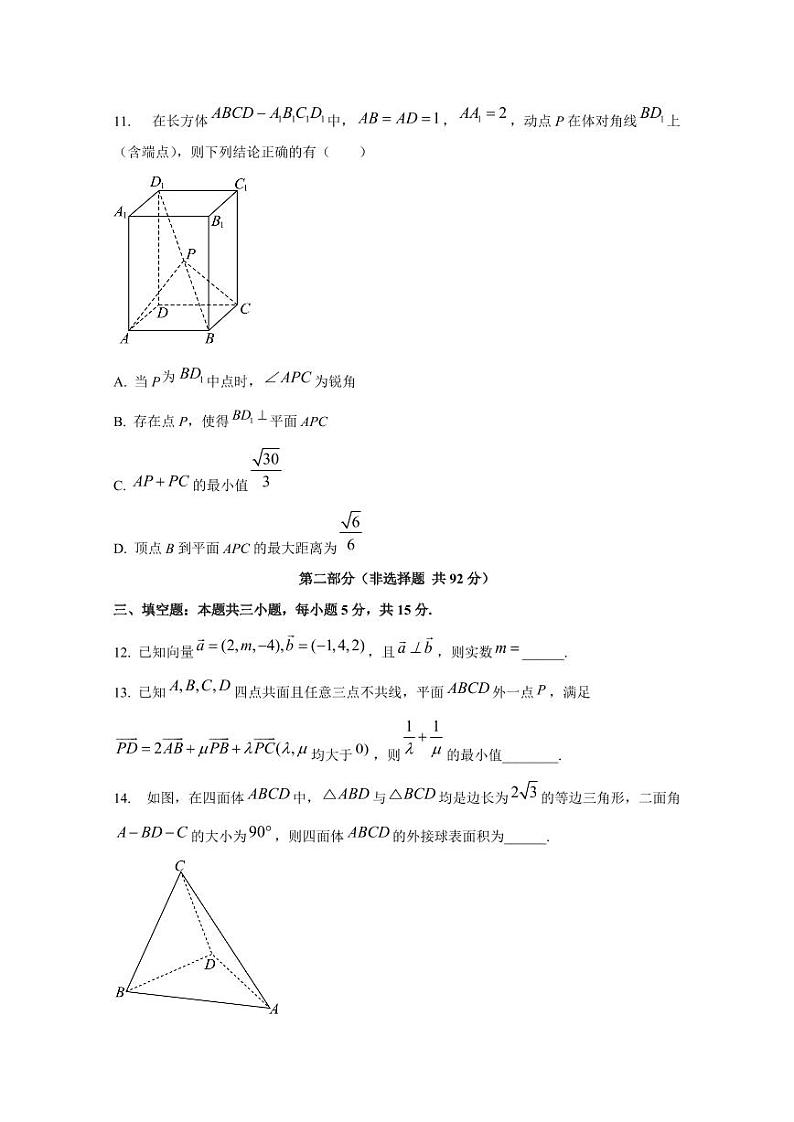 11. 在长方体 ABCD − A₁B₁C₁D₁ 中， AB = AD = 1， AA₁ = 2 ，动点 P 在体对角线 BD₁ 上
（含端点），则下列结论正确的有（ ）
D₁ C₁
A₁ B₁
P
D C
A B
A. 当 P 为 BD₁ 中点时， ∠APC 为锐角
B. 存在点 P，使得 BD₁ ⊥ 平面 APC
C. AP + PC 的最小值 √30/3
D. 顶点 B 到平面 APC 的最大距离为 √6/6
第二部分（非选择题 共 92 分）
三、填空题：本题共三小题，每小题 5 分，共 15 分.
12. 已知向量 a⃗ = (2, m, −4), b⃗ = (−1, 4, 2) ，且 a⃗ ⊥ b⃗ ，则实数 m = ______.
13. 已知 A, B, C, D 四点共面且任意三点不共线，平面 ABCD 外一点 P ，满足
PD⃗ = 2AB⃗ + μPB⃗ + λPC⃗ (λ, μ 均大于 0) ，则 1/λ + 1/μ 的最小值________.
14. 如图，在四面体 ABCD 中， △ABD 与 △BCD 均是边长为 2√3 的等边三角形，二面角
A − BD − C 的大小为 90° ，则四面体 ABCD 的外接球表面积为______.
C
D
B
A